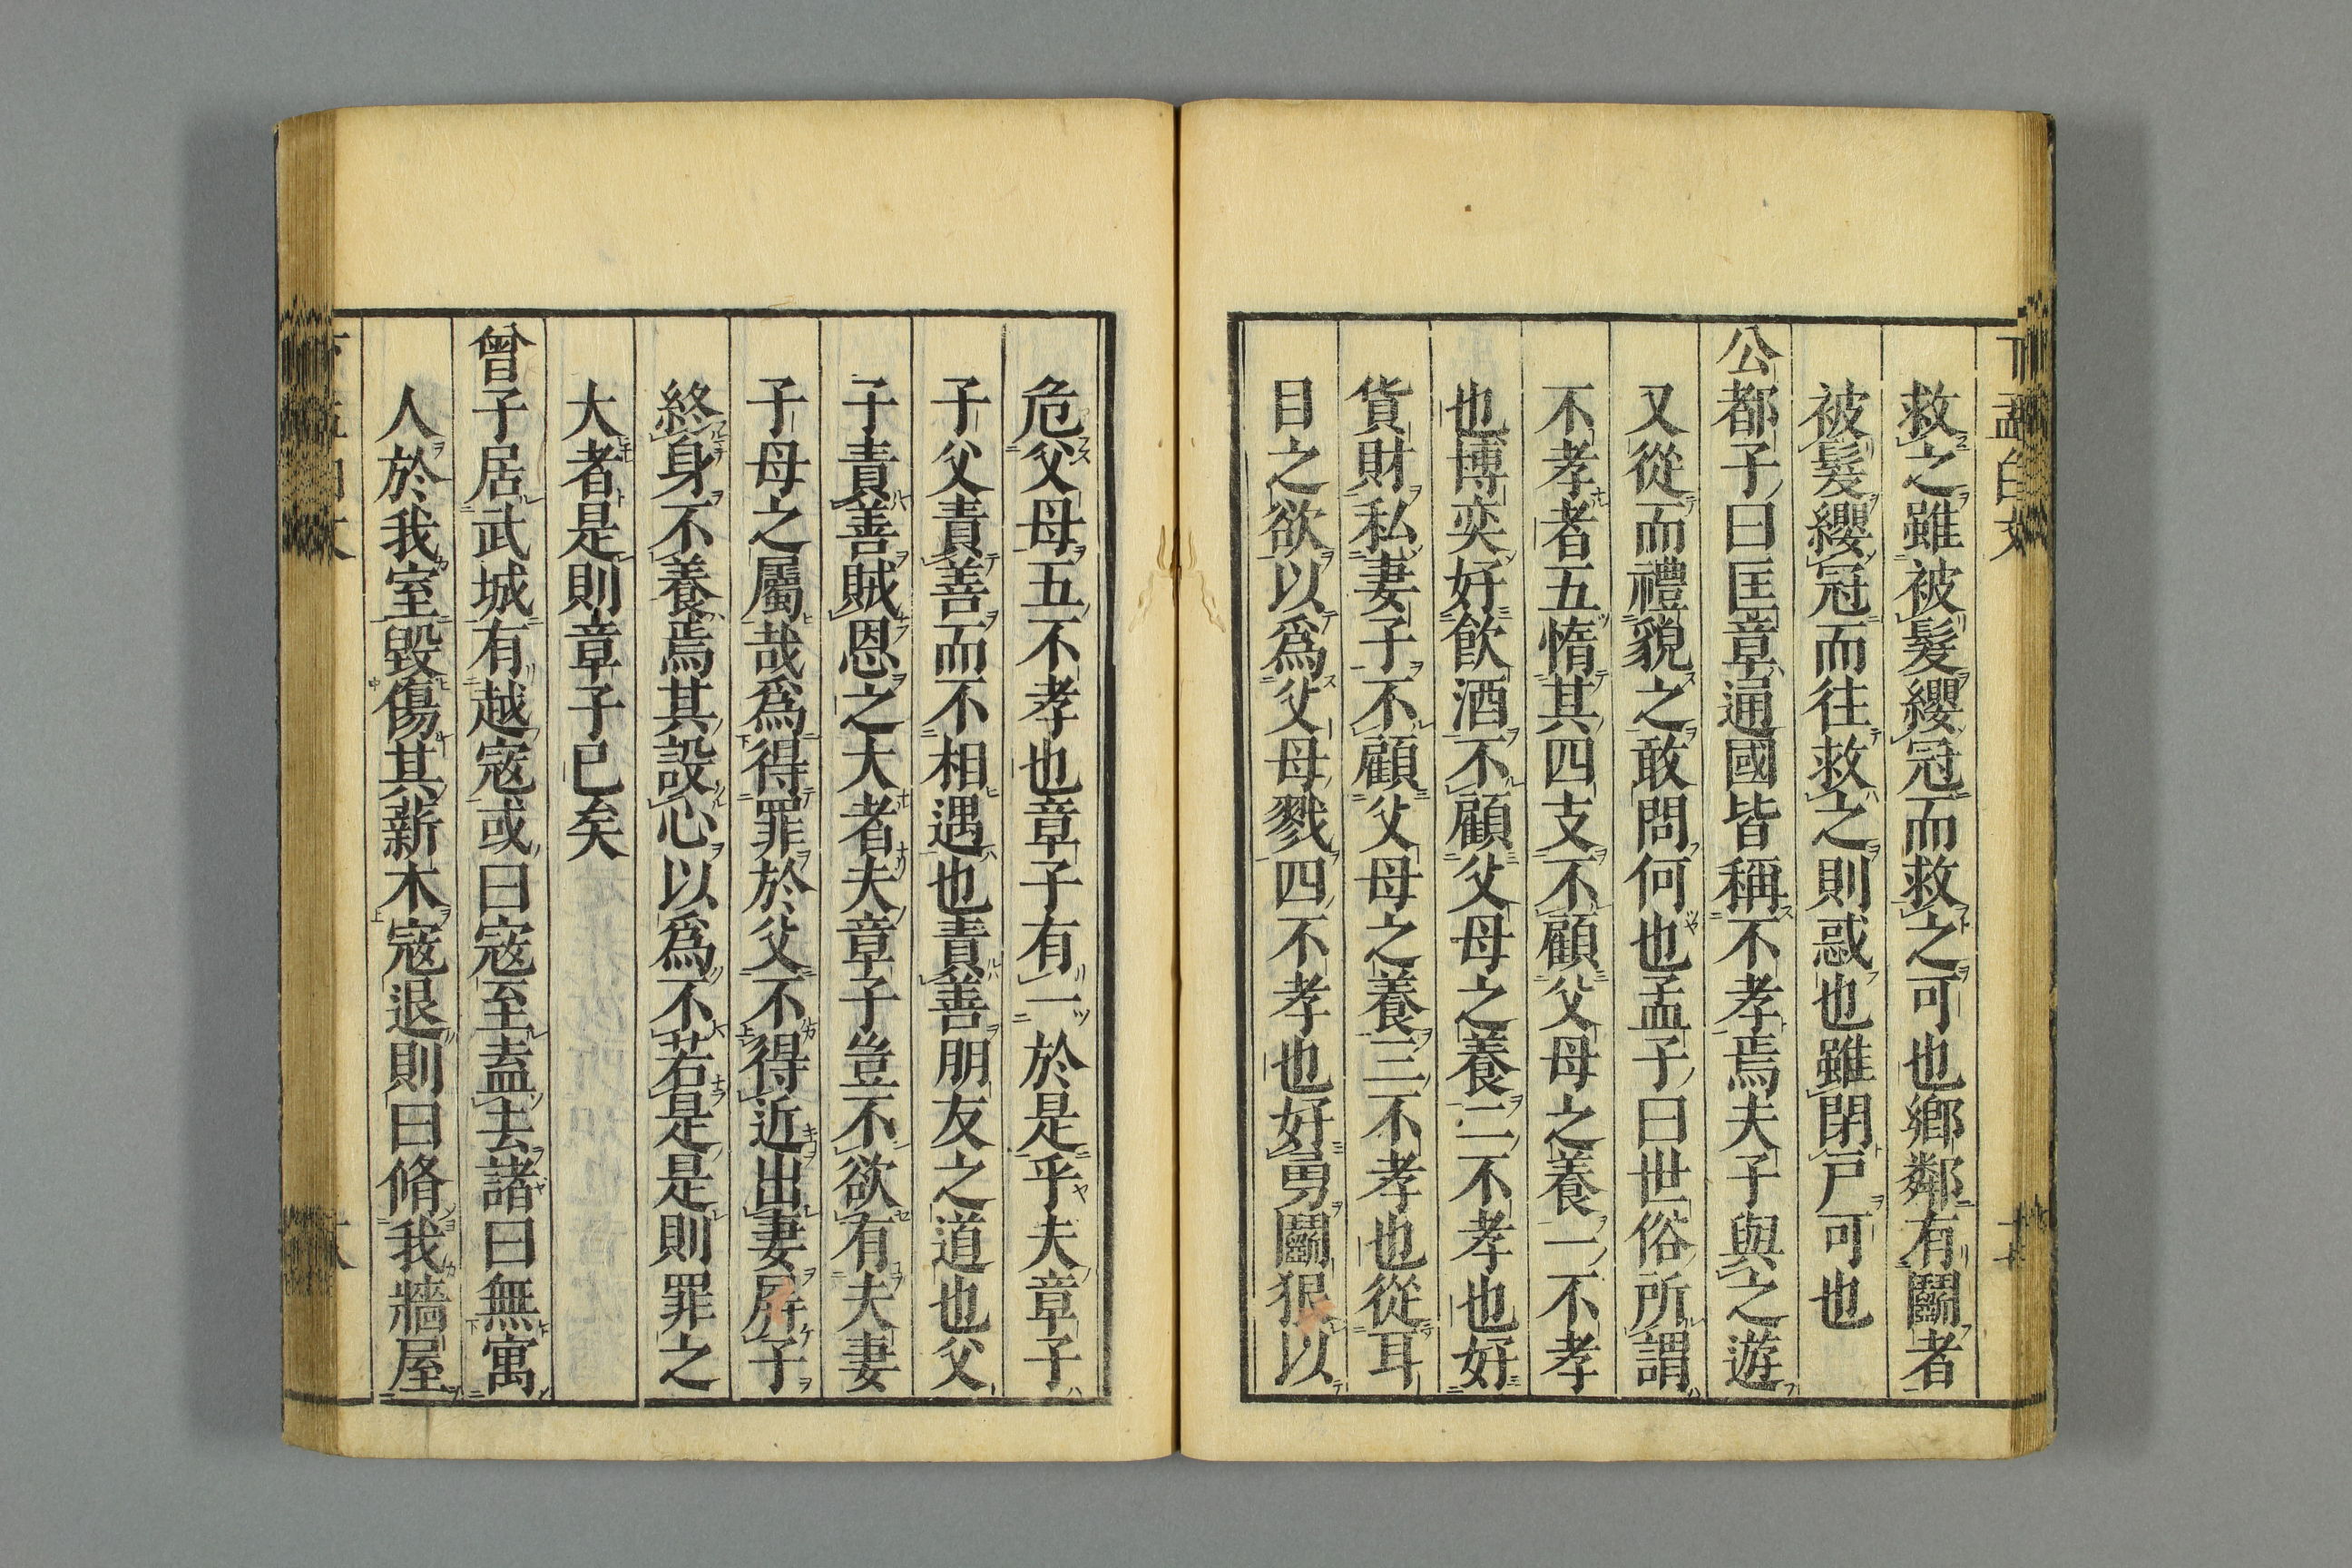 救之雖被髮纓冠而救之可也鄕鄰有鬭者
被髮纓冠而往救之則惑也雖閉戸可也
公都子曰匡章通國皆稱不孝焉夫子與之遊
又從而禮貌之敢問何也孟子曰世俗所謂
不孝者五惰其四支不顧父母之養一不孝
也博奕好飮酒不顧父母之養二不孝也好
貨財私妻子不顧父母之養三不孝也從耳
目之欲以爲父母戮四不孝也好勇鬭狠以
危父母五不孝也章子有一於是乎夫章子
子父責善而不相遇也責善朋友之道也父
子責善賊恩之大者夫章子豈不欲有夫妻
子母之屬哉爲得罪於父不得近出妻屏子
終身不養焉其設心以爲不若是是則罪之
大者是則章子已矣
曾子居武城有越寇或曰寇至盍去諸曰無寓
人於我室毀傷其薪木寇退則曰脩我牆屋